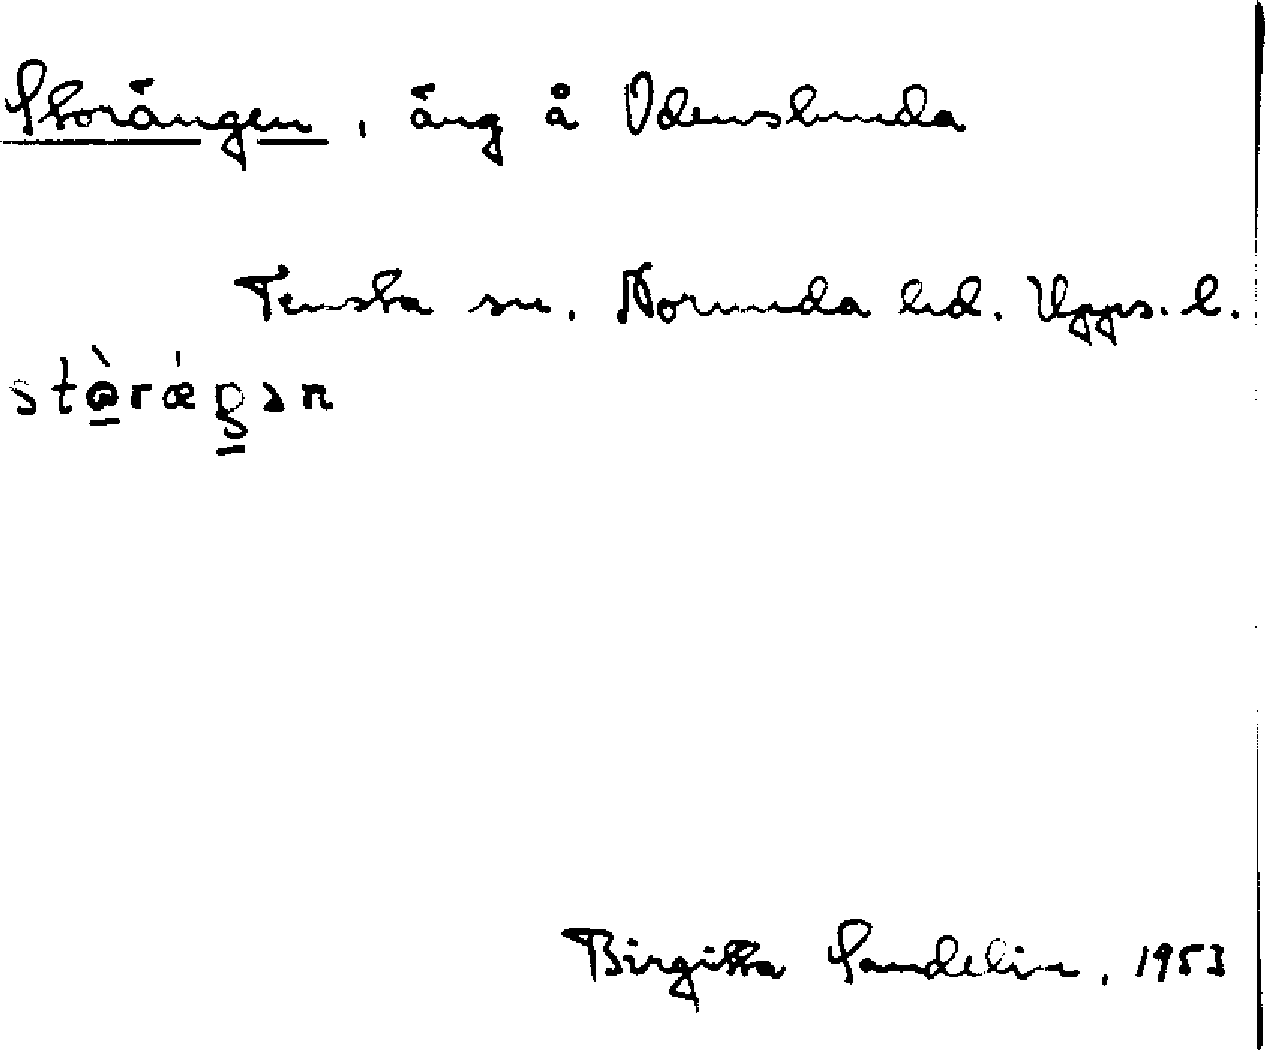 Storängen, äng å Odenslunda
Tensta sn. Norunda hd. Upps. l.
Birgitta Sandelin, 1953